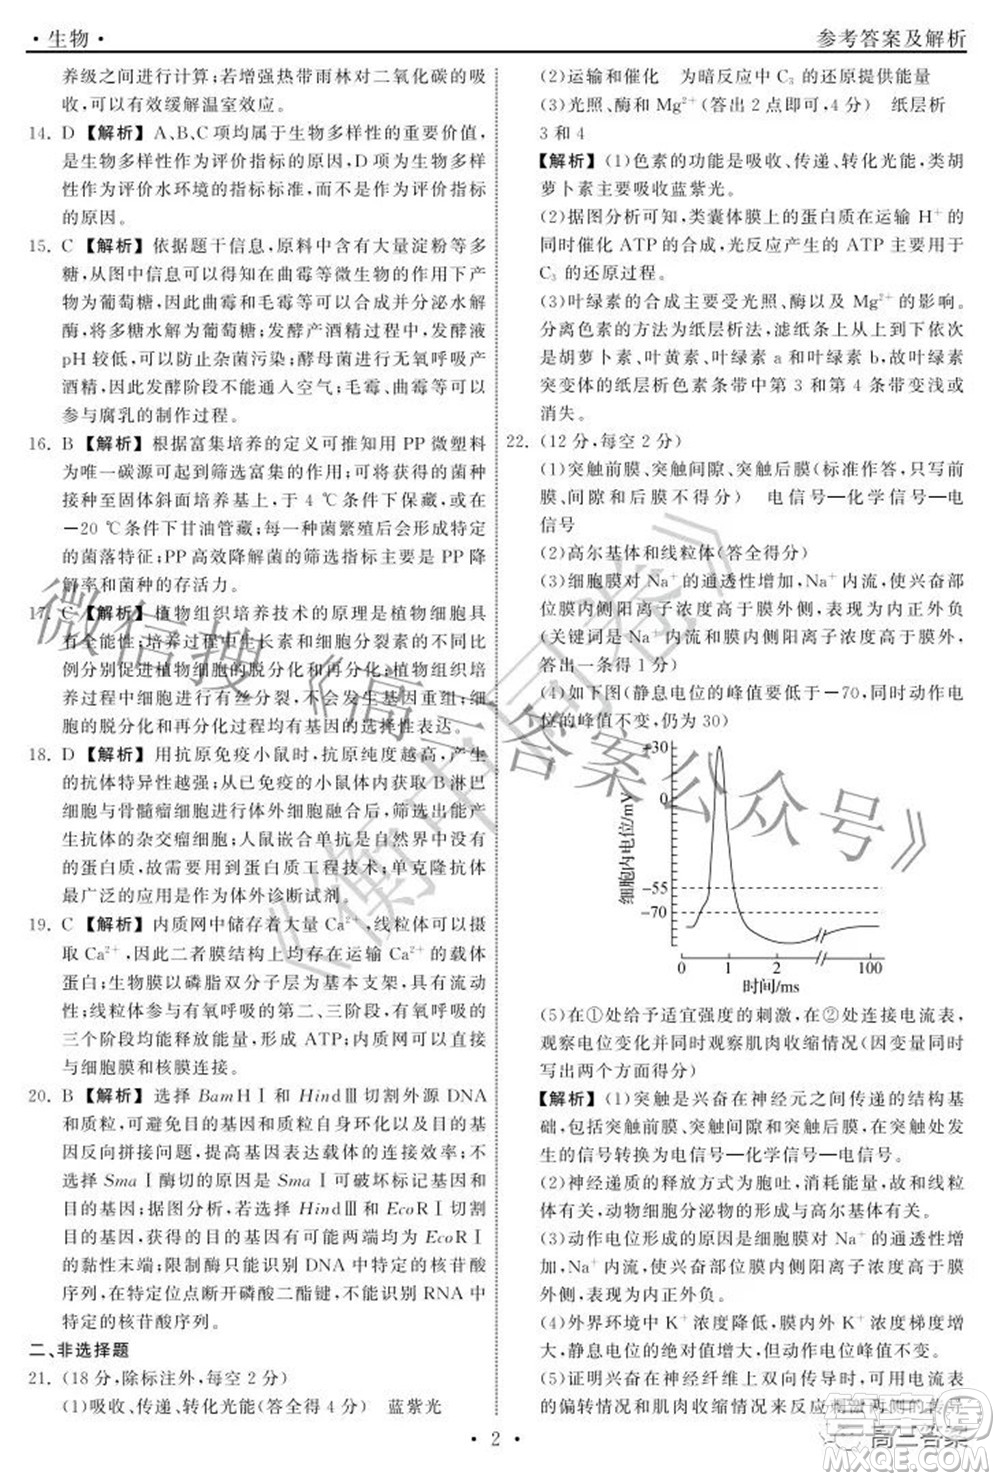 · 生物 ·
参考答案及解析
养级之间进行计算;若增强热带雨林对二氧化碳的吸
收,可以有效缓解温室效应。
14. D 【解析】A、B、C 项均属于生物多样性的重要价值,
是生物多样性作为评价指标的原因,D 项为生物多样
性作为评价水环境的指标标准,而不是作为评价指标
的原因。
15. C 【解析】依据题干信息,原料中含有大量淀粉等多
糖,从图中信息可以得知在曲霉等微生物的作用下转
为葡萄糖,可以得知曲霉和毛霉等可产生并分泌水解
酶,将多糖水解为葡萄糖;发酵产酒精过程中,发酵液
pH 较低,可以减少杂菌污染;酵母菌进行无氧呼吸产
酒精,因此发酵阶段不能通入空气;毛霉、曲霉等可以
参与腐乳的制作过程。
16. B 【解析】根据富集培养的定义可推知用 PP 微塑料
为唯一碳源可起到筛选富集的作用;可将获得的菌种
接种至固体斜面培养基中,于 4 ℃条件下保藏,或在
-20 ℃条件下甘油管藏;每一种菌繁殖后会形成特定
的菌落特征;PP 高效降解菌的筛选指标主要是 PP 降
解率和菌种的存活力。
17. C 【解析】植物组织培养技术的原理是植物细胞具
有全能性;培养过程中生长素和细胞分裂素的不同比
例分别促进植物细胞的脱分化和再分化;植物组织培
养过程中细胞进行有丝分裂,不会发生基因重组;细
胞的脱分化和再分化过程均有基因的选择性表达。
18. D 【解析】用抗原免疫小鼠时,抗原纯度越高,产生
的抗体特异性越强;从已免疫的小鼠体内获取 B 淋巴
细胞与骨髓瘤细胞进行体外细胞融合后,筛选出能产
生抗体的杂交瘤细胞;人鼠嵌合单抗是自然界中没有
的蛋白质,故该过程属于蛋白质工程技术;单克隆抗体
最广泛的应用是作为体外诊断试剂。
19. C 【解析】内质网中储存着大量 Ca²⁺,线粒体可以摄
取 Ca²⁺,因此二者膜结构上均存在运输 Ca²⁺ 的载体
蛋白;生物膜以磷脂双分子层为基本支架,具有流动
性;线粒体参与有氧呼吸的第二、三阶段,有氧呼吸的
三个阶段均能释放能量,形成 ATP;内质网可以直接
与细胞膜和核膜连接。
20. B 【解析】选择 BamH Ⅰ 和 Hind Ⅲ 切割外源 DNA
和质粒,可以避免目的基因和质粒自身环化以及目的
基因反向拼接问题,提高基因表达载体的成功率;不使
用 Sma Ⅰ 酶切的原因是 Sma Ⅰ 可破坏标记基因和目
的基因;据图分析,若选择 Hind Ⅲ 和 EcoR Ⅰ 切割
目的基因,目的基因有可能两端均为 EcoR Ⅰ 切割的
黏性末端;限制酶只能识别 DNA 中特定的核苷酸
序列,在特定位点断开磷酸二酯键,不能识别 RNA 中
特定的核苷酸序列。
二、非选择题
21. (18 分,除标注外,每空 2 分)
(1)吸收、传递、转化光能(答全得 4 分) 蓝紫光
(2)运输和催化 为暗反应中 C₃ 的还原提供能量
(3)光照、酶和 Mg²⁺(答出 2 点即可,4 分) 纸层析
3 和 4
【解析】(1)色素的功能是吸收、传递、转化光能,类胡
萝卜素主要吸收蓝紫光。
(2)据图分析可知,类囊体膜上的蛋白质在运输 H⁺ 的
同时催化 ATP 的合成,光反应产生的 ATP 可用于
C₃ 的还原过程。
(3)叶绿素的合成主要受光照、酶以及 Mg²⁺ 的影响。
分离色素的方法为纸层析法,滤纸条上从上到下依次
是胡萝卜素、叶黄素、叶绿素 a 和叶绿素 b,故叶绿素
突变体的纸层析色素条带中第 3 和第 4 条带变浅或
消失。
22. (12 分,每空 2 分)
(1)突触前膜、突触间隙、突触后膜(标准作答,只写前
膜,间隙和后膜不得分) 电信号—化学信号—电
信号
(2)高尔基体和线粒体(答全得分)
(3)细胞膜对 Na⁺ 的通透性增强,Na⁺ 内流,使兴奋部
位膜内侧阳离子浓度高于膜外侧,表现为内正外负
(关键词是 Na⁺ 内流和膜内侧阳离子浓度高于膜外,
答出一条得 1 分)
(4)如下图(静息电位的峰值要低于-70,同时动作电
位的峰值不变,仍为 30)
细胞内电位/mV
+30
0
-55
-70
0 1 2 100
时间/ms
(5)在①处给予适宜强度的刺激,在②处连接电流表,
观察电位变化并同时观察肌肉收缩情况(因变量两个
观察点,答全得分)
【解析】(1)突触是兴奋在神经元之间传递的结构基
础,包括突触前膜、突触间隙和突触后膜,在突触处发
生的信号转换为电信号—化学信号—电信号。
(2)神经递质的释放方式为胞吐,消耗能量,故和线粒
体有关,动物细胞分泌物的形成与高尔基体有关。
(3)动作电位形成的原因是细胞膜对 Na⁺ 的通透性增
强,Na⁺ 内流,使兴奋部位膜内侧阳离子浓度高于膜外侧,
表现为内正外负。
(4)外界环境中 K⁺ 浓度降低,膜内外 K⁺ 浓度差增
大,静息电位的绝对值增大,但动作电位的峰值不变。
(5)证明兴奋在神经纤维上双向传导,可用②处电流表
· 2 ·
微信搜《高三答案公众号》
《衡中同卷》
高三答案